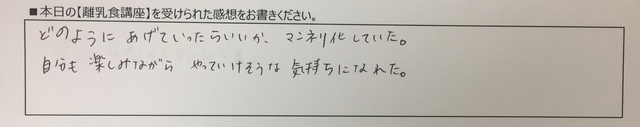 ■本日の【離乳食講座】を受けられた感想をお書きください。
どのように あげていったらいいか、マンネリ化していた。
自分も 楽しみながら やっていけそうな 気持ちになれた。